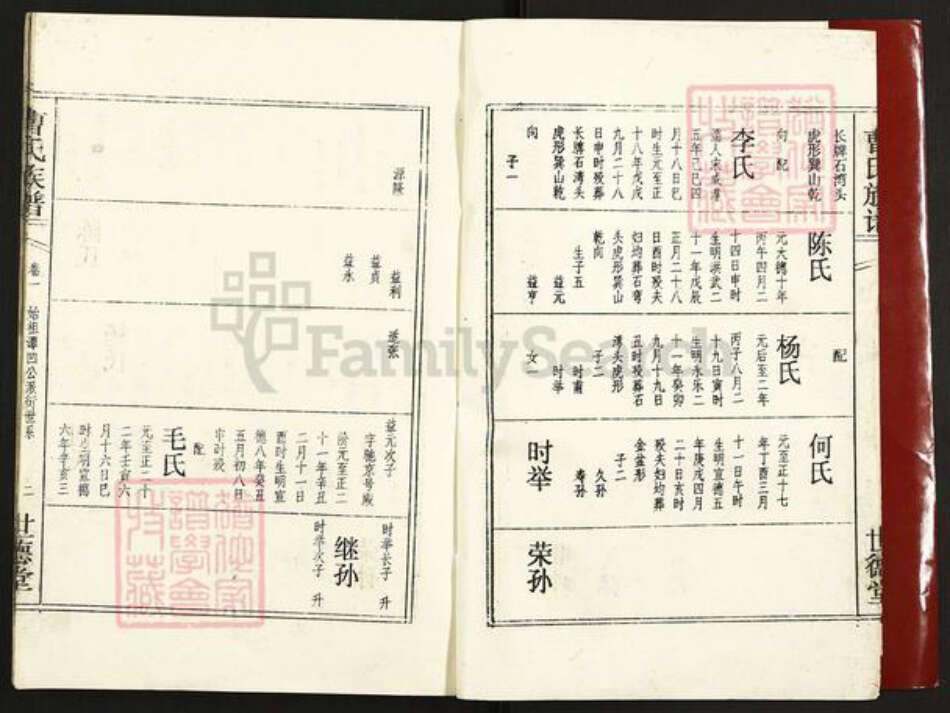 曹氏族谱
世德堂
长牌石湾头
虎形巽山乾
向 配
李氏
五年己巳四
月十八日巳
时生元至正
十八年戊戌
九月二十八
日申时殁葬
长牌石湾头
虎形巽山乾
向 子一
陈氏
元大德十年
丙午四月二
十四日申时
生明洪武二
十一年戊辰
正月二十八
日酉时殁夫
妇均葬石弯
头虎形巽山
乾向
生子五
益元
益亨
配
杨氏
元后至二年
丙子八月二
十九日寅时
生明永乐二
十一年癸卯
九月十九日
丑时殁葬石
湾头虎形
子二
时甫
时举
女
何氏
元至正十七
年丁酉三月
十一日午时
生明宣德五
年庚戌四月
二十日亥时
殁夫妇均葬
金盆形
子二
久孙
寿孙
时举
荣孙
源隆
益利
益贞
益永
适张
益元次子
字驰京号厥
徐元至正二
十一年辛丑
二月十一日
酉时生明宣
德八年癸丑
五月初八日
午时殁
配
毛氏
元至正二十
二年壬寅六
月十六日巳
时生明宣德
六年辛亥三
时举长子 升
继孙
时举次子 升
曹氏族谱
卷一 始祖谭凹公派衍世系
二
世德堂
FamilySearch